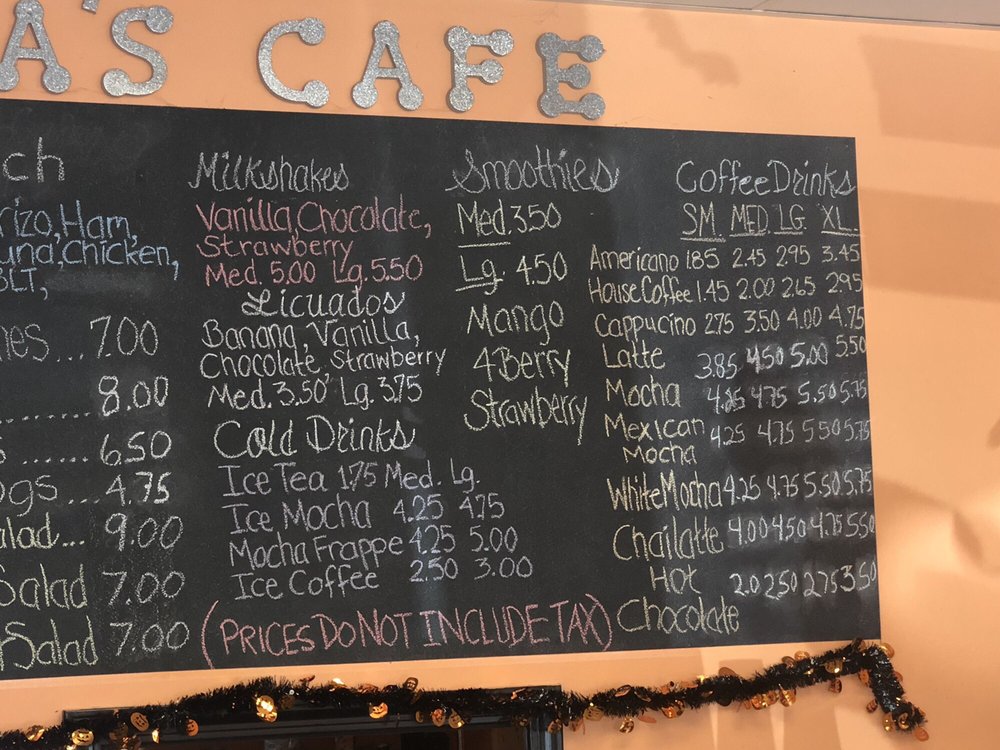 A'S CAFE
ch
rizo, Ham,
una, Chicken,
BLT,
nes ... 7.00
........ 8.00
s ...... 6.50
ogs ... 4.75
alad... 9.00
Salad 7.00
Salad 7.00
Milkshakes
Vanilla, Chocolate,
Strawberry
Med. 5.00 Lg. 5.50
Licuados
Banana, Vanilla,
Chocolate, Strawberry
Med. 3.50 Lg. 3.75
Cold Drinks
Ice Tea 1.75 Med. Lg.
Ice Mocha 4.25 4.75
Mocha Frappe 4.25 5.00
Ice Coffee 2.50 3.00
(PRICES DO NOT INCLUDE TAX)
Smoothies
Med. 3.50
Lg. 4.50
Mango
4 Berry
Strawberry
Coffee Drinks
SM. MED. LG. XL.
Americano 1.85 2.45 2.95 3.45
House Coffee 1.45 2.00 2.65 2.95
Cappucino 2.75 3.50 4.00 4.75
Latte 3.85 4.50 5.00 5.50
Mocha 4.25 4.75 5.50 5.75
Mexican 4.25 4.75 5.50 5.75
Mocha
White Mocha 4.25 4.75 5.50 5.75
Chai latte 4.00 4.50 4.75 5.50
Hot 2.0 2.50 2.75 3.50
Chocolate